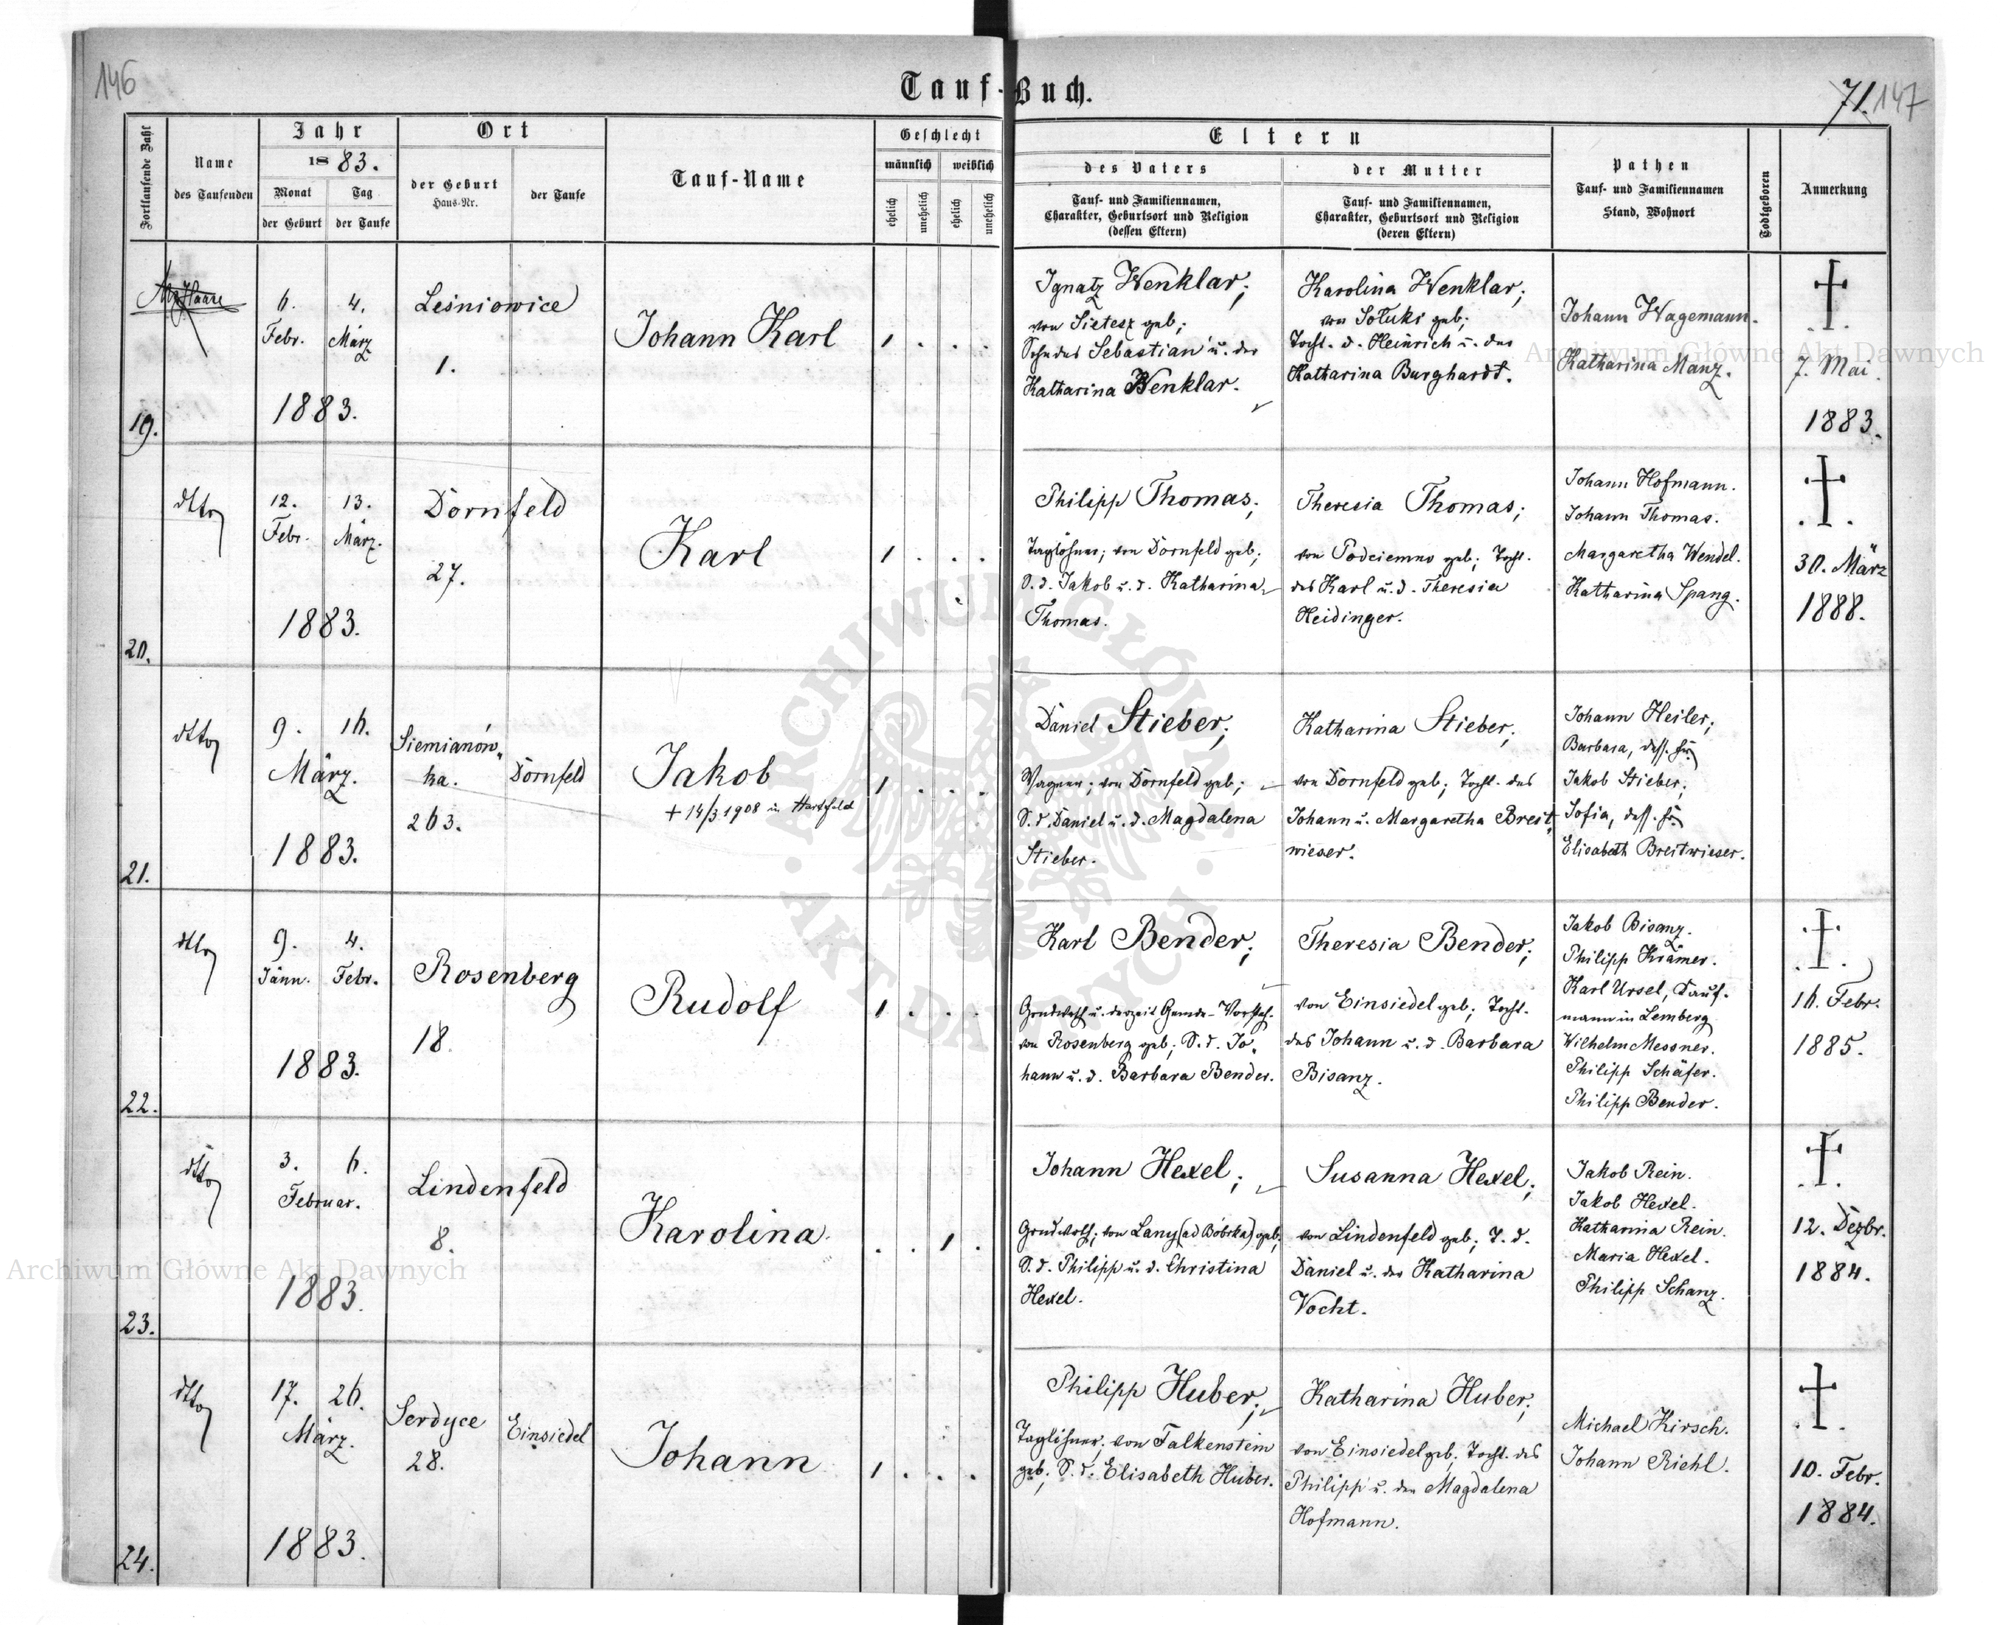 146
Tauf-Buch.
71. 147
Fortlaufende Zahl
Name
des Taufenden
Jahr
1883.
Monat
Tag
der Geburt
der Taufe
Ort
der Geburt
Haus-Nr.
der Taufe
Tauf-Name
Geschlecht
männlich
weiblich
ehelich
unehelich
ehelich
unehelich
Eltern
des Vaters
Tauf- und Familiennamen,
Charakter, Geburtsort und Religion
(dessen Eltern)
der Mutter
Tauf- und Familiennamen,
Charakter, Geburtsort und Religion
(deren Eltern)
Pathen
Tauf- und Familiennamen
Stand, Wohnort
Todtgeboren
Anmerkung
19.
6. 4.
Febr. März
1883.
Leśniowice
1.
Johann Karl
1 . . .
Ignatz Wenklar;
von Sietesz geb;
Sohn des Sebastian u. der
Katharina Wenklar.
Karolina Wenklar;
von Sołuki geb;
Tocht. d. Heinrich u. der
Katharina Burghardt.
Johann Wagemann.
Katharina Manz.
7. Mai.
1883.
20.
dtto
12. 13.
Febr. März.
1883.
Dornfeld
27.
Karl
1 . . .
Philipp Thomas;
Taglöhner; von Dornfeld geb;
S. d. Jakob u. d. Katharina
Thomas.
Theresia Thomas;
von Podciemno geb; Tocht.
des Karl u. d. Theresia
Heidinger.
Johann Hofmann.
Johann Thomas.
Margaretha Wendel.
Katharina Spang.
30. März
1888.
21.
dtto
9. 16.
März.
1883.
Siemianów„
ka.
263.
Dornfeld
Jakob
+ 14/3 1908 in Hartfeld
1 . . .
Daniel Stieber;
Wagner; von Dornfeld geb;
S. d. Daniel u. d. Magdalena
Stieber.
Katharina Stieber;
von Dornfeld geb; Tocht. des
Johann u. Margaretha Breit„
wieser.
Johann Heiler;
Barbara, dess. Fr.
Jakob Stieber;
Sofia, dess. Fr.
Elisabeth Breitwieser.
22.
dtto
9. 4.
Jänn. Febr.
1883.
Rosenberg
18.
Rudolf
1 . . .
Karl Bender;
Grundwrth u. derzeit Gemde-Vorsteh.
von Rosenberg geb; S. d. Jo„
hann u. d. Barbara Bender.
Theresia Bender;
von Einsiedel geb; Tocht.
des Johann u. d. Barbara
Bisanz.
Jakob Bisanz.
Philipp Krämer.
Karl Ursel, Kauf-
mann in Lemberg
Wilhelm Messner.
Philipp Schäfer.
Philipp Bender.
16. Febr.
1885.
23.
dtto
3. 6.
Februar.
1883.
Lindenfeld
8.
Karolina
. . 1 .
Johann Hexel;
Grundwrth; von Lany (ad Bóbrka) geb;
S. d. Philipp u. d. Christina
Hexel.
Susanna Hexel;
von Lindenfeld geb; T. d.
Daniel u. der Katharina
Vocht.
Jakob Rein.
Jakob Hexel.
Katharina Rein.
Maria Hexel.
Philipp Schanz.
12. Dezbr.
1884.
24.
dtto
17. 26.
März.
1883.
Serdyce
28.
Einsiedel
Johann
1 . . .
Philipp Huber;
Taglöhner; von Falkenstein
geb; S. d. Elisabeth Huber.
Katharina Huber;
von Einsiedel geb; Tocht. des
Philipp u. der Magdalena
Hofmann.
Michael Kirsch.
Johann Riehl.
10. Febr.
1884.
Archiwum Główne Akt Dawnych
Archiwum Główne Akt Dawnych
ARCHIWUM GŁÓWNE · AKT DAWNYCH ·